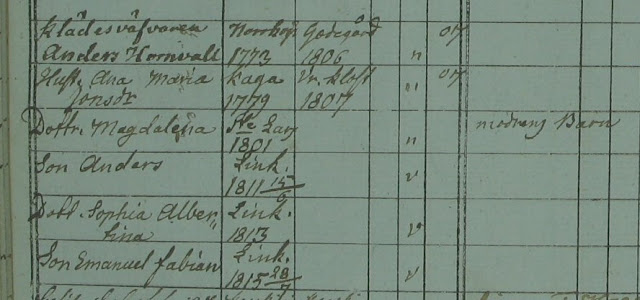 Klädesväfvaren Norrkop Godegård 07
Anders Hornvall 1773 1806 "
Hust. Ana Maria Kaga Vr. Klost 07
Jonsdr 1779 1807 "
Dottr. Magdalena Ste Lars modrens Barn
1801 "
Son Anders Link. v
1811 15/6
Dott. Sophia Alber" Link.
tina 1813 v
Son Emanuel fabian Link. v
1815 28/7